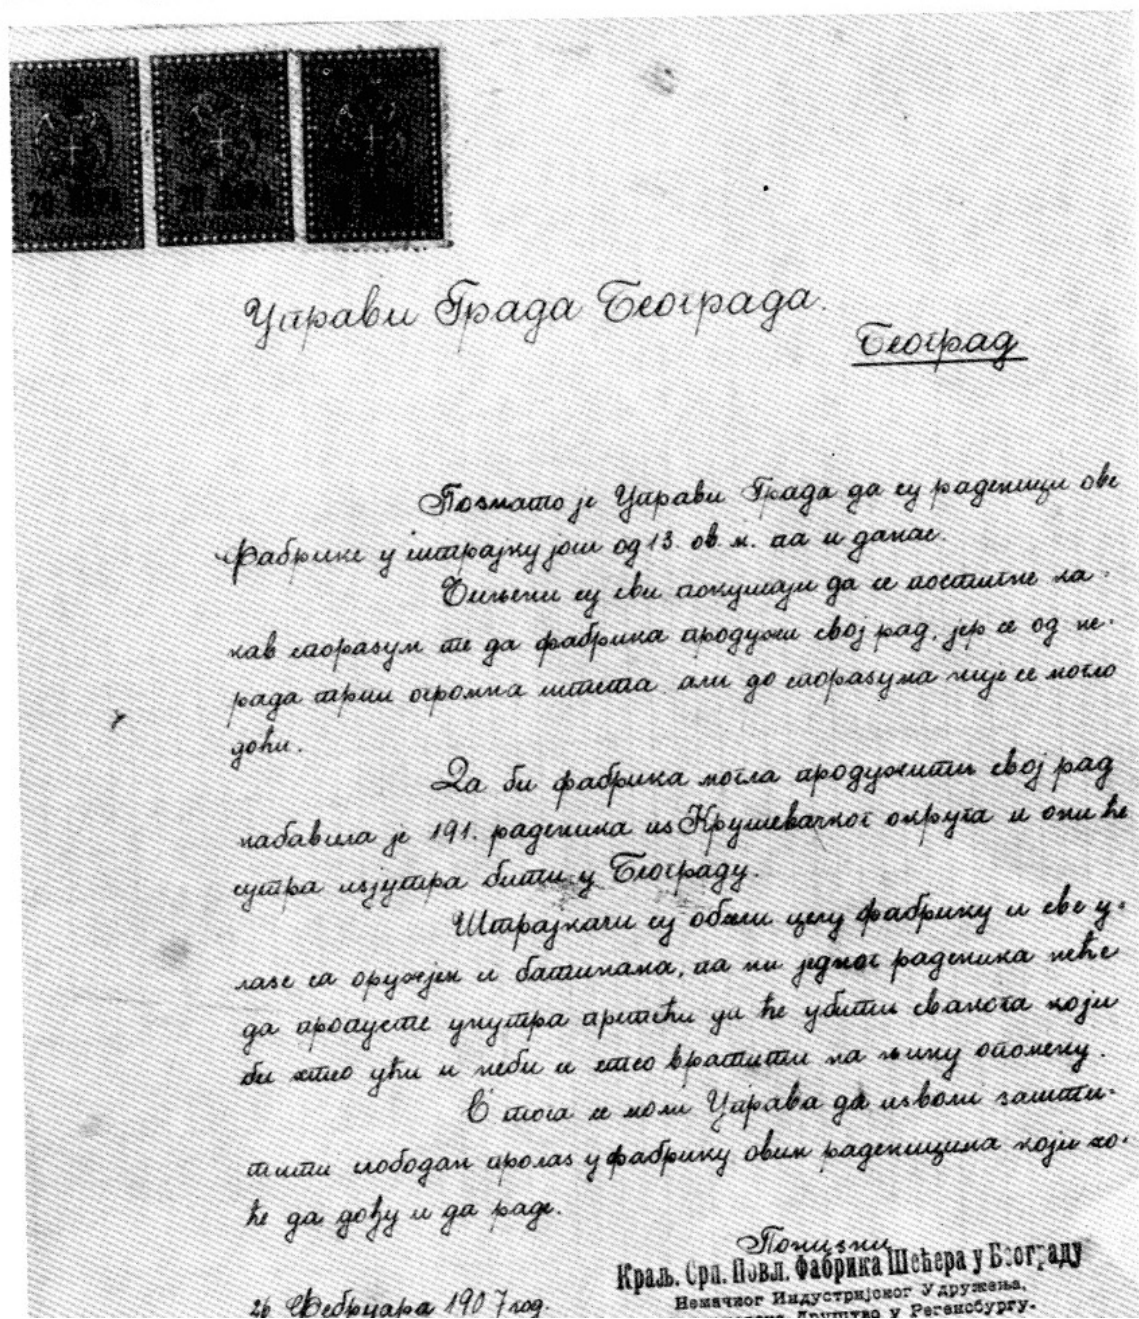 Управи Града Београда.
Београд
Познато је Управи Града да су раденици ове
фабрике у штрајку још од 13. ов. м. па и данас.
Чињени су сви покушаји да се постигне ка-
кав споразум те да фабрика продужи свој рад, јер се од не-
рада трпи огромна штета али до споразума није се могло
доћи.
Да би фабрика могла продужити свој рад
набавила је 191. раденика из Крушевачког округа и они ће
сутра изјутра бити у Београду.
Штрајкачи су обишли целу фабрику и све у-
лазе са оружјем и батинама, па ни једног раденика неће
да пропусте унутра претећи да ће убити свакога који
би хтео ући и неби се хтео вратити на њину опомену.
С тога се моли Управа да изволи зашти-
тити слободан пролаз у фабрику овим раденицима који хо-
ће да дођу и да раде.
Понизни
Краљ. Срп. Повл. Фабрика Шећера у Београду
Немачког Индустријског Удружења,
Друштво у Регенсбургу.
26 Фебруара 1907 год.